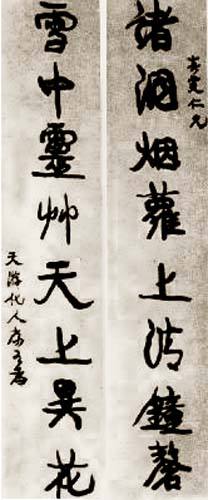 仁兄
諸洞烟蘿上清鐘磬
雪中靈艸天上異花
天游化人康有為